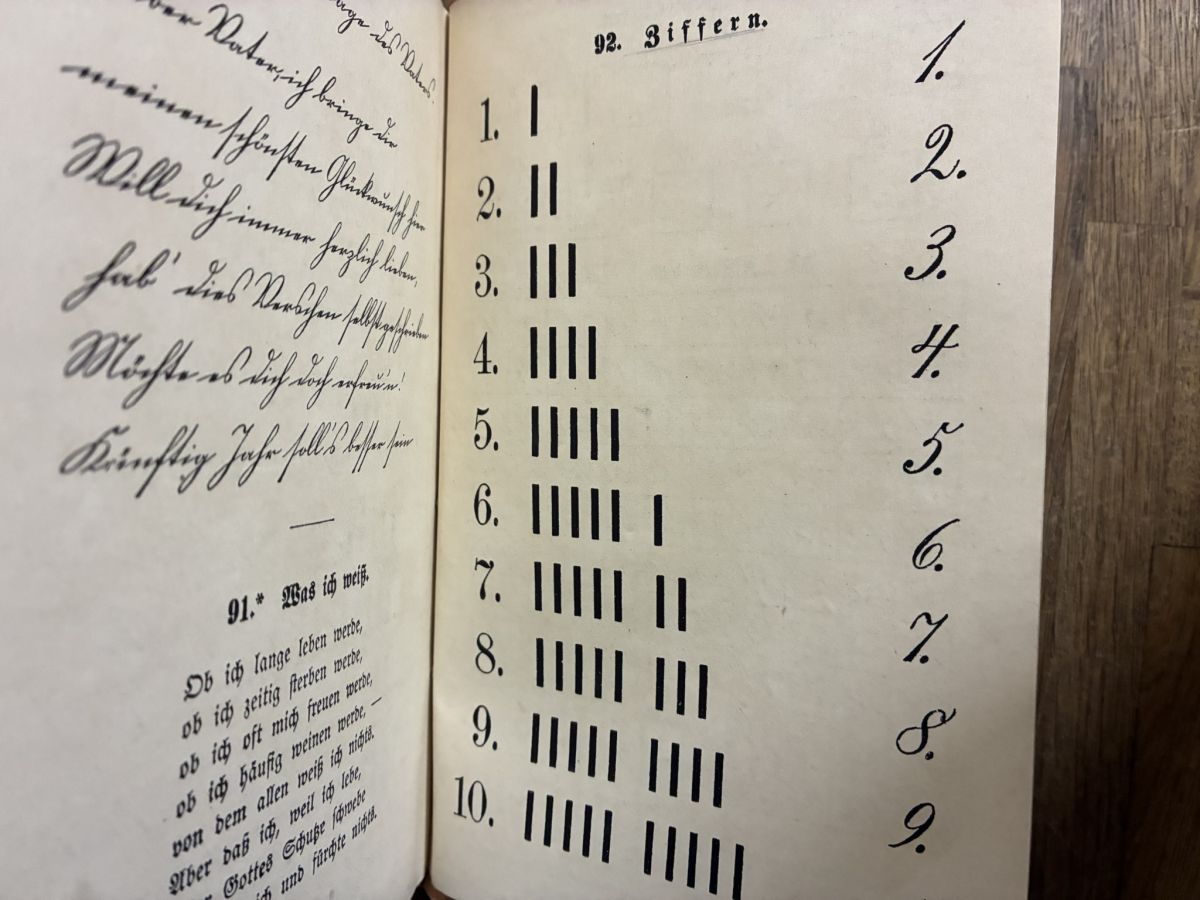 age des Vaters.
ber Vater, ich bringe dir
meinen schönsten Glückwunsch hier
Will dich immer herzlich lieben,
hab' dies Verschen selbst geschrieben
Möchte es dich doch erfreu'n!
Künftig Jahr soll's besser sein
91.* Was ich weiß.
Ob ich lange leben werde,
ob ich zeitig sterben werde,
ob ich oft mich freuen werde,
ob ich häufig weinen werde, —
von dem allen weiß ich nichts.
Aber daß ich, weil ich lebe,
Gottes Schutze schwebe
ich und fürchte nichts.
92. Ziffern.
1. 1.
2. 2.
3. 3.
4. 4.
5. 5.
6. 6.
7. 7.
8. 8.
9. 9.
10.